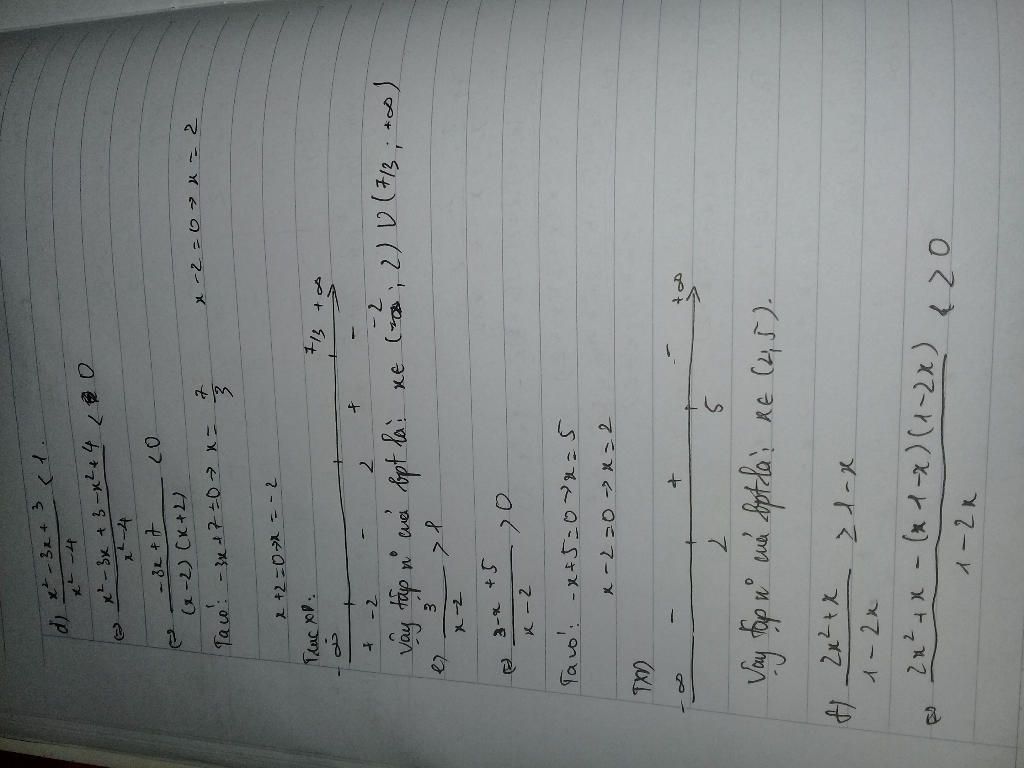 d) x² - 3x + 3 / x² - 4 < 1.
⇔ x² - 3x + 3 - x² + 4 / x² - 4 < 0
⇔ - 3x + 7 / (x - 2) (x + 2) < 0
Ta có: -3x + 7 = 0 → x = 7/3 x - 2 = 0 → x = 2
x + 2 = 0 → x = -2
-∞ 7/3 +∞
+ -2 - 2 + -
Vậy tập n° của bpt là: x ∈ (-2; 2) ∪ (7/3; +∞)
e) 3 / x - 2 > 1
⇔ 3 - x + 5 / x - 2 > 0
Ta có: -x + 5 = 0 → x = 5
x - 2 = 0 → x = 2
TXD
-∞ - + - +∞
2 5
Vậy tập n° của bpt là: x ∈ (2, 5).
f) 2x² + x / 1 - 2x ≥ 1 - x
⇔ 2x² + x - (1 - x) (1 - 2x) / 1 - 2x ≥ 0